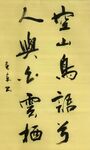 空山鳥語兮
人與白雲栖